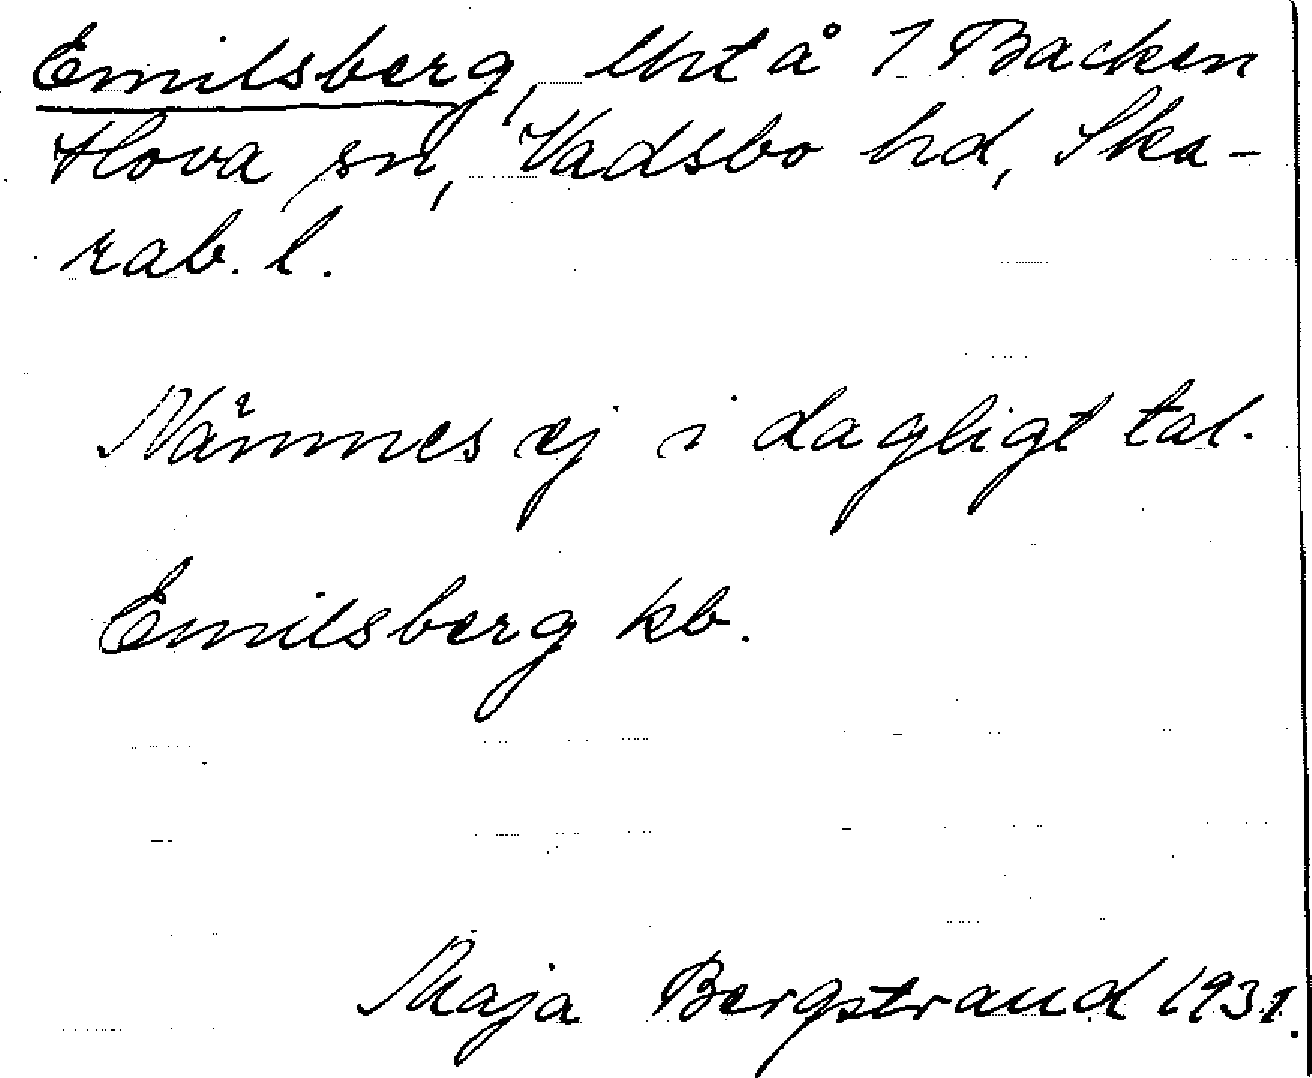 Emilsberg, lht å 1 Backen
Hova sn, Vadsbo hd, Ska-
rab. l.
Nämnes ej i dagligt tal.
Emilsberg kb.
Maja Bergstrand 1931.